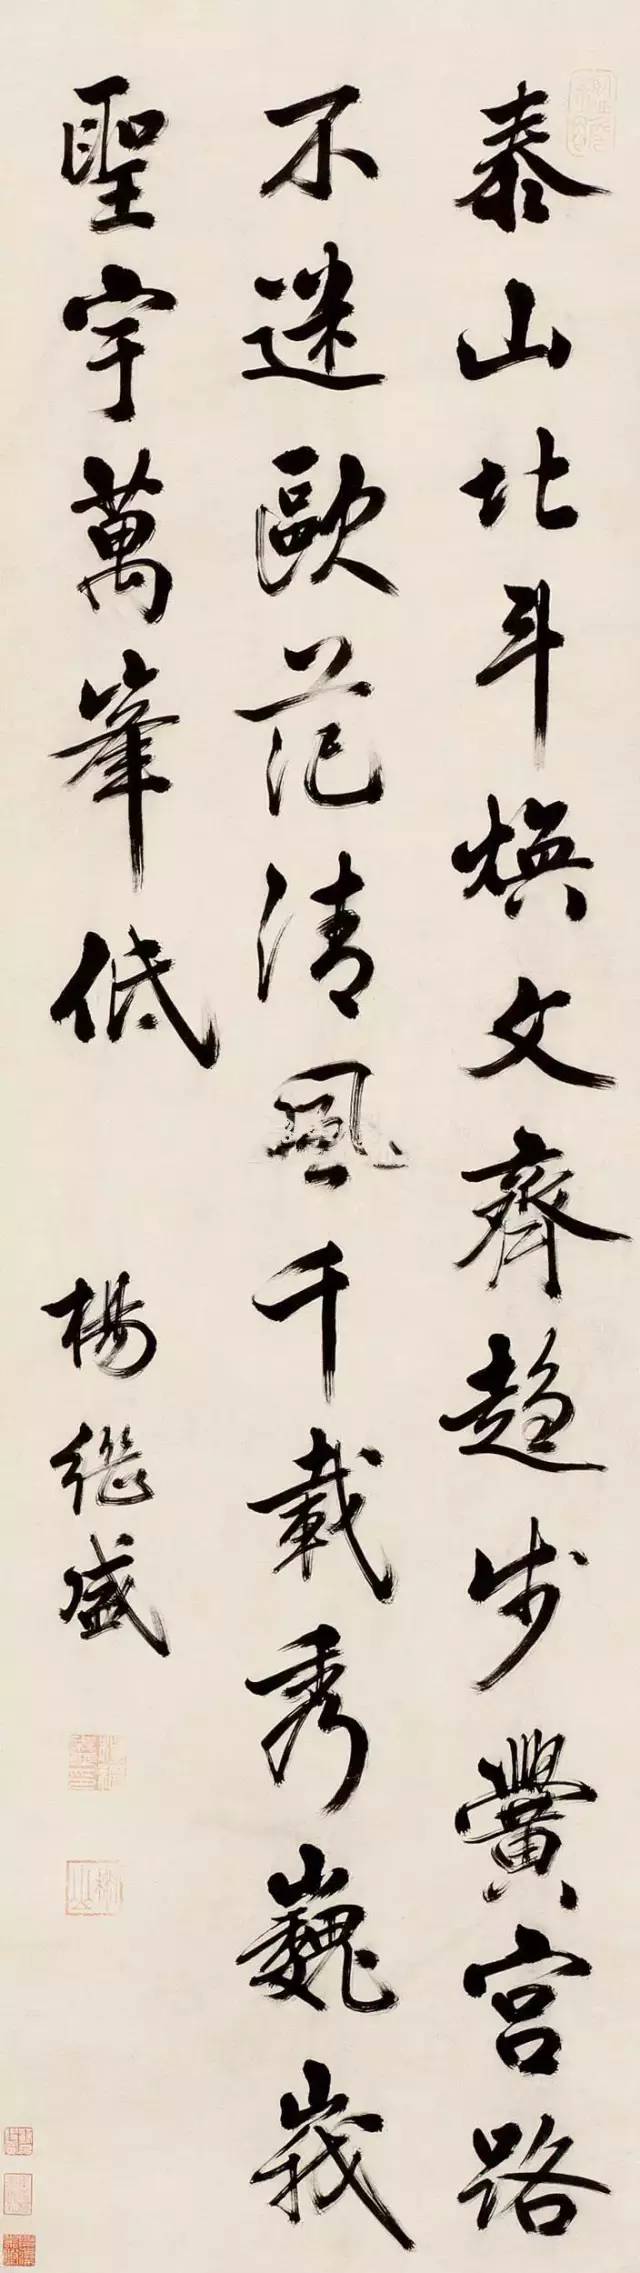 泰山北斗煥文齊趋步黌宮路
不迷歐范清風千載秀巍峩
聖宇萬峯低
楊繼盛